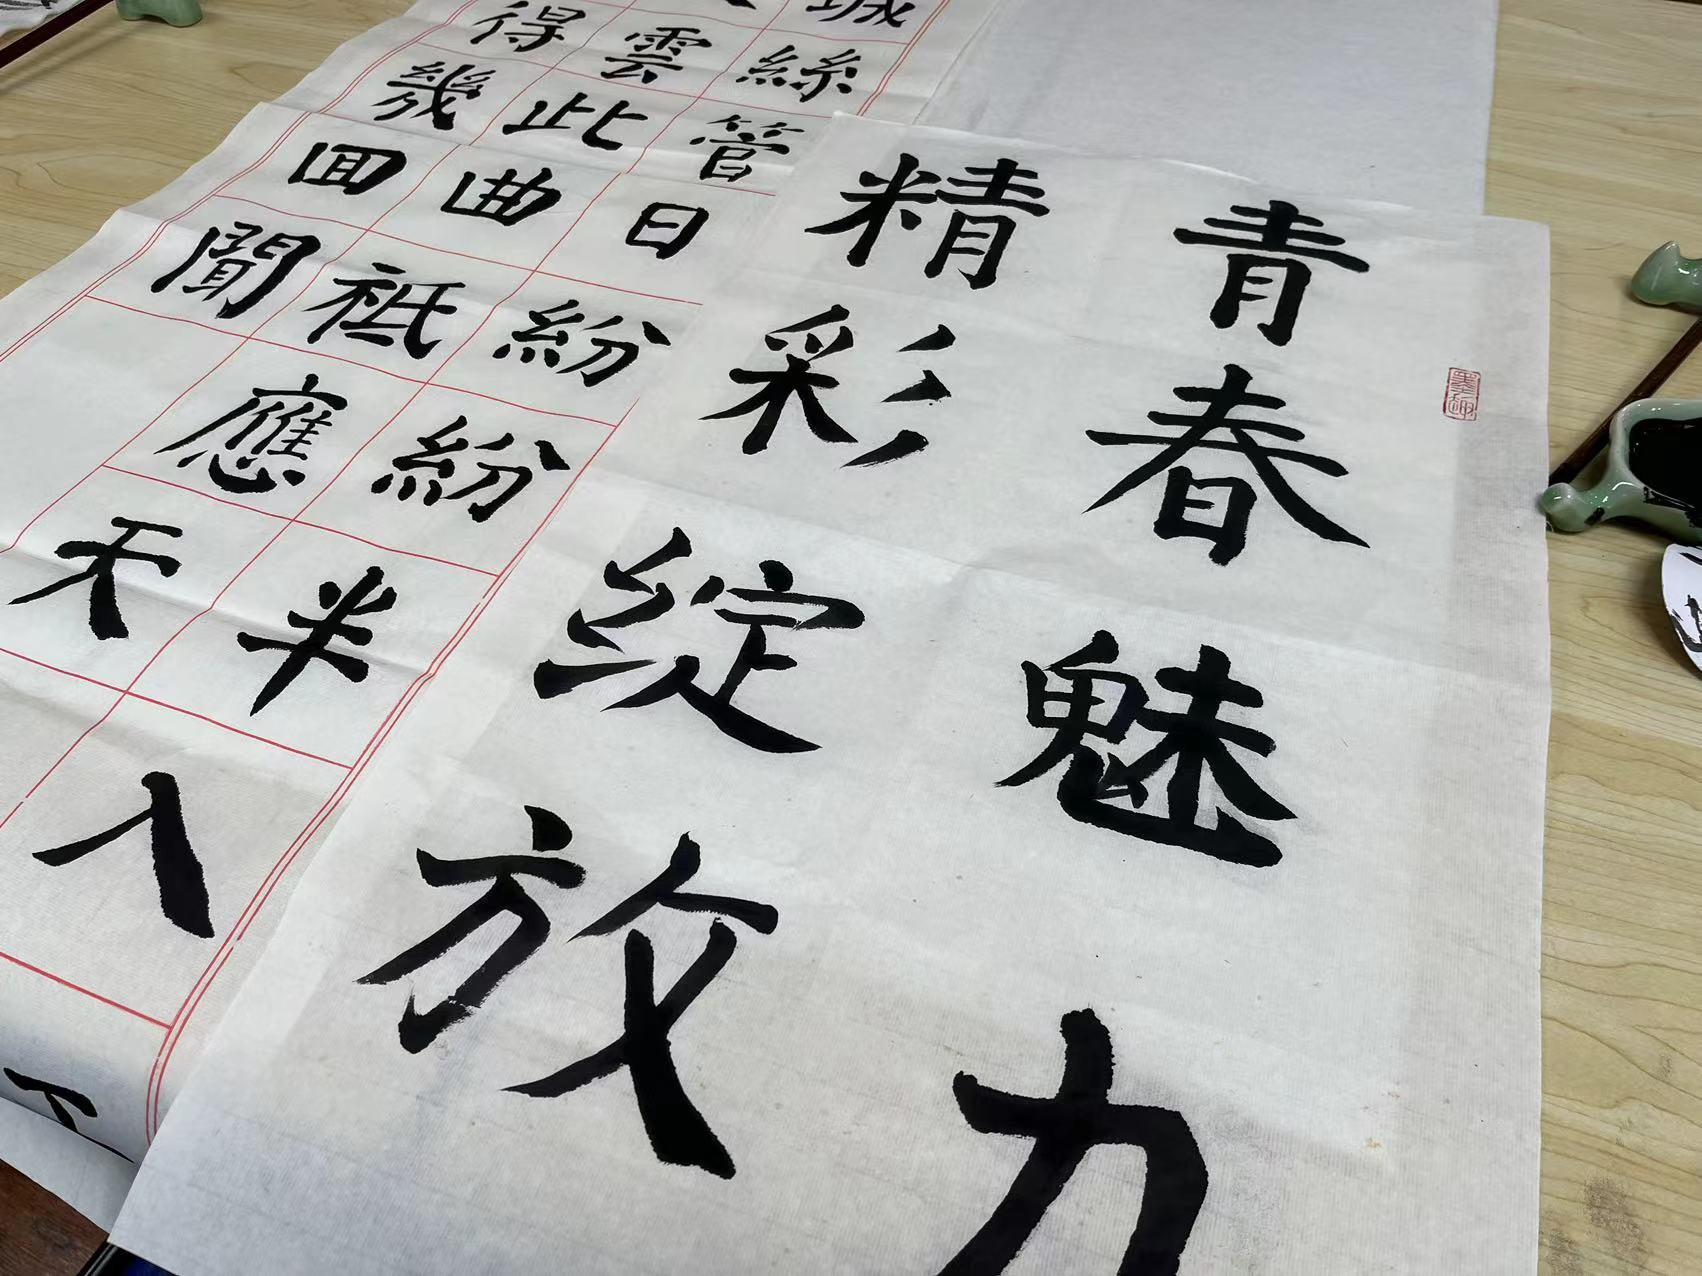 青春魅力
精彩绽放
墨趣
城絲管日紛紛半入
雲此曲祗應天
得幾回聞